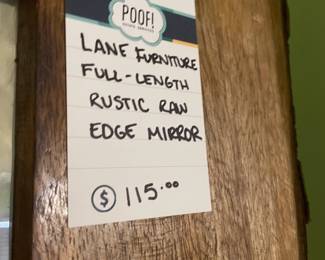 POOF!
ESTATE SERVICES
LANE FURNITURE
FULL-LENGTH
RUSTIC RAW
EDGE MIRROR
$ 115.00